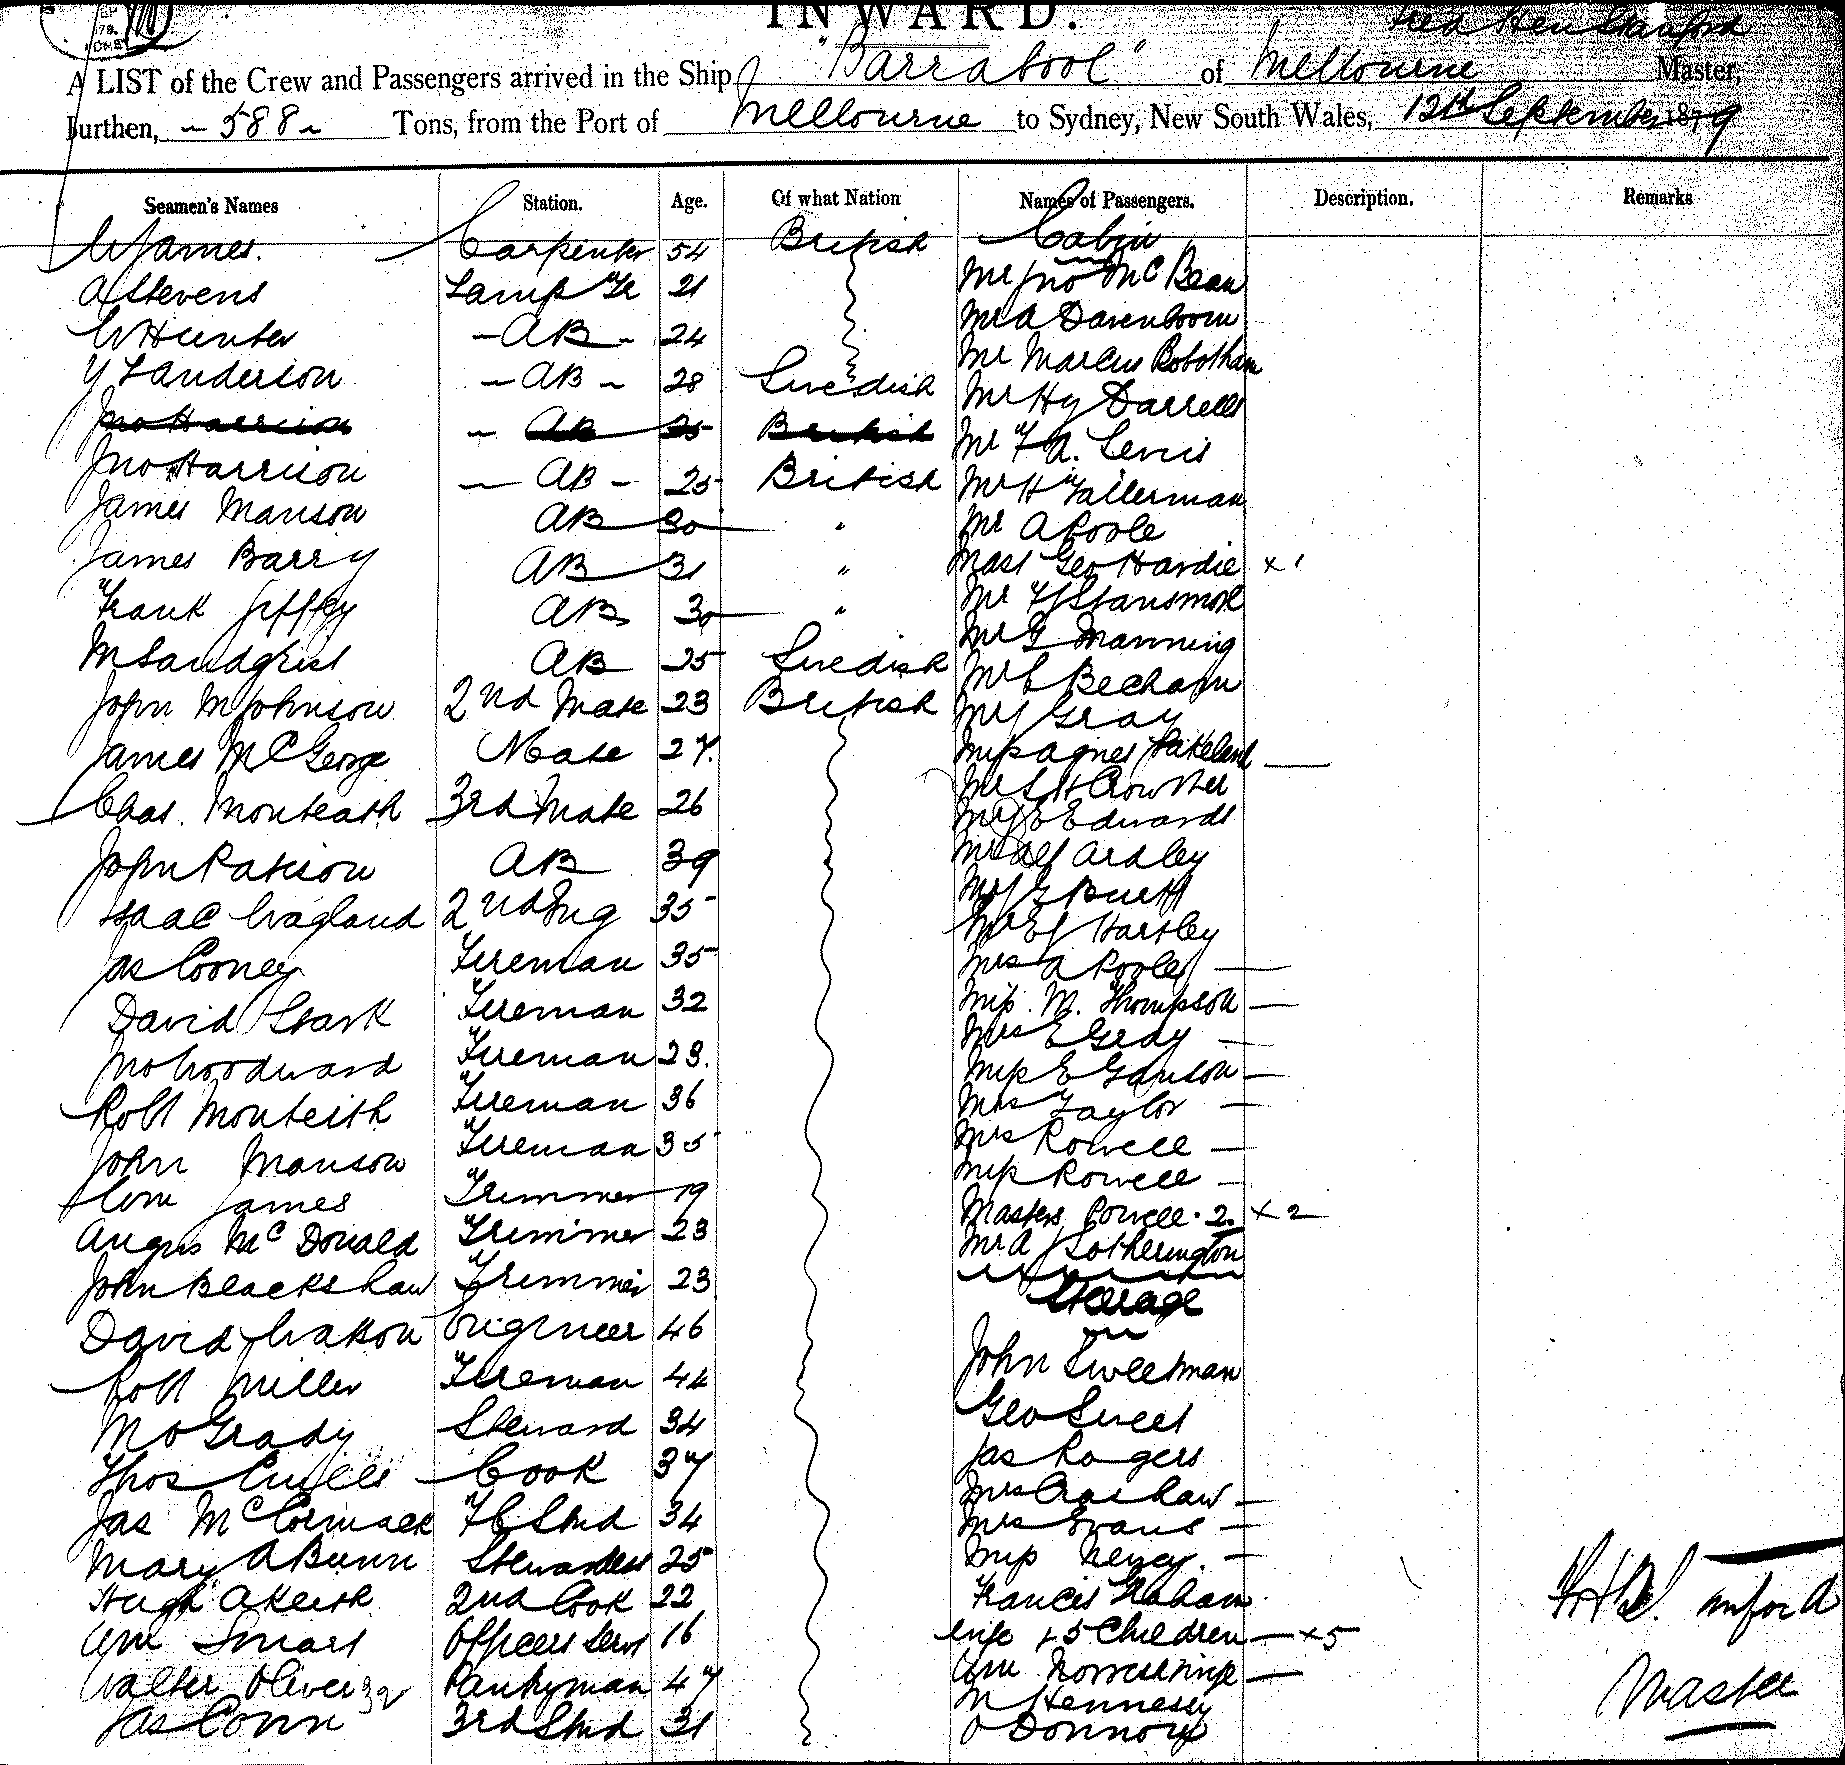 INWARD.
A LIST of the Crew and Passengers arrived in the Ship "Barrabool" of Melbourne Master,
Burthen, 588 Tons, from the Port of Melbourne to Sydney, New South Wales, 12th September 1879
Seamen's Names Station. Age. Of what Nation Names of Passengers. Description. Remarks
W James. Carpenter 54 British Cabin
A Stevens Lamp Tr 21 Mr Jno McBean
W Hunter AB 24 Mr A
AB 28 Swedish Mr Marcus Robotham
Jno Harrison AB 25 British Mr Hy Darrell
Jno Harrison AB 25 British Mr F A. Lewis
James Manson AB 30 " Mr H Tallerman
James Barry AB 31 " Mr A Poole
Frank Jeffrey AB 30 " Mast Geo Hardie x 1
M Sandqrist AB 25 Swedish Mr G Manning
John M Johnson 2nd Mate 23 British Mr J Gray
James McGeorge Mate 27. Miss Agnes
Chas. Monteath 3rd Mate 26 Mr Crowther
Mr J E Edwards
John Patison AB 39 Mr Alf Ardley
Isaac Wagland 2nd Eng 35
Mr E J Hartley
Jas Cooney Fireman 35 Mrs A Poole
David Stark Fireman 32 Miss M. Thompson
Jno Woodward Fireman 23. Mrs E Gray
Robt Monteith Fireman 36 Miss E
Mrs Taylor
John Manson Fireman 35 Mrs Rowell
Wm James Trimmer 19 Miss Rowell
Angus McDonald Trimmer 23 Masters Rowell. 2. x 2
John Blackshaw Trimmer 23 Mr A J Lotherington
Steerage
David Watson Engineer 46
Robt Miller Fireman 44 John Sweetman
M O Grady Steward 34 Geo Sweet
Thos Cook 37 Jas Rogers
Jas McCormack F C Stwd 34 Mrs
Mary A Bunn Stewardess 25 Mrs Evans
Hugh Akeish 2nd Cook 22 Miss
Wm Smart Officers Servt 16 Francis Graham
Walter Oliver 32 Pantryman 47 wife + 5 Children x 5
Jas Conn 3rd Stwd 31 M Hennessy
O Donnor
Master